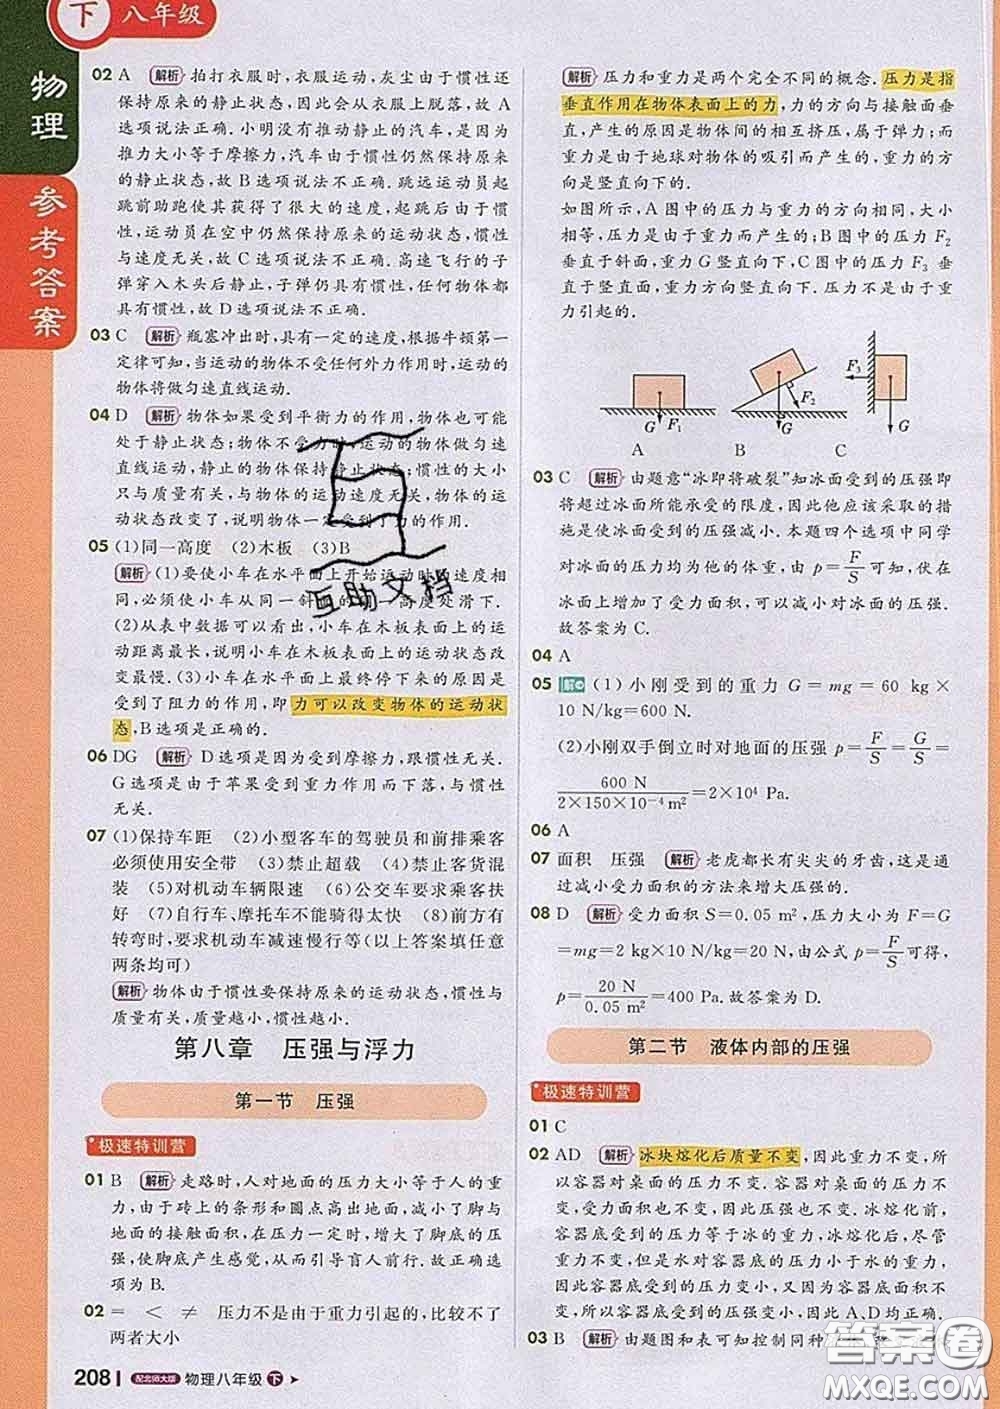 下 八年级
物理
参考答案
02 A 解析 拍打衣服时,衣服运动,灰尘由于惯性还
保持原来的静止状态,因此会从衣服上脱落,故 A
选项说法正确. 小明没有推动静止的汽车,是因为
推力大小等于摩擦力,汽车由于惯性仍然保持原来
的静止状态,故 B 选项说法不正确. 跳远运动员起
跳前助跑使其获得了很大的速度,起跳后由于惯
性,运动员在空中仍然保持原来的运动状态,惯性
与速度无关,故 C 选项说法不正确. 高速飞行的子
弹穿入木头后静止,子弹仍具有惯性,任何物体都
具有惯性,故 D 选项说法不正确.
03 C 解析 瓶塞冲出时,具有一定的速度,根据牛顿第一
定律可知,当运动的物体不受任何外力作用时,运动的
物体将做匀速直线运动.
04 D 解析 物体如果受到平衡力的作用,物体也可能
处于静止状态;物体不受力时,运动的物体做匀速
直线运动,静止的物体保持静止状态;惯性的大小
只与质量有关,与物体的运动速度无关;物体的运动
状态改变了,说明物体一定受到了力的作用.
05 (1)同一高度 (2)木板 (3)B
解析 (1)要使小车在水平面上开始运动时的速度相
同,必须使小车从同一斜面的同一高度处滑下.
(2)从表中数据可以看出,小车在木板表面上的运
动距离最长,说明小车在木板表面上的运动状态改
变最慢. (3)小车在水平面上最终停下来的原因是
受到了阻力的作用,即力可以改变物体的运动状
态,B 选项是正确的.
06 DG 解析 D 选项是因为受到摩擦力,跟惯性无关.
G 选项是由于苹果受到重力作用而下落,与惯性
无关.
07 (1)保持车距 (2)小型客车的驾驶员和前排乘客
必须使用安全带 (3)禁止超载 (4)禁止客货混
装 (5)对机动车辆限速 (6)公交车要求乘客扶
好 (7)自行车、摩托车不能骑得太快 (8)前方有
转弯时,要求机动车减速慢行等(以上答案填任意
两条均可)
解析 物体由于惯性要保持原来的运动状态,惯性与
质量有关,质量越小,惯性越小.
第八章 压强与浮力
第一节 压强
极速特训营
01 B 解析 走路时,人对地面的压力大小等于人的重
力,由于砖上的条形和圆点高出地面,减小了脚与
地面的接触面积,在压力一定时,增大了脚底的压
强,使脚底产生感觉,从而引导盲人前行. 故正确选
项为 B.
02 = < ≠ 压力不是由于重力引起的,比较不了
两者大小
208 配北师大版 物理八年级 下
解析 压力和重力是两个完全不同的概念. 压力是指
垂直作用在物体表面上的力,力的方向与接触面垂
直,产生的原因是物体间的相互挤压,属于弹力;而
重力是由于地球对物体的吸引而产生的,重力的方
向是竖直向下的.
如图所示,A 图中的压力与重力的方向相同,大小
相等,但不是由于重力而产生的;B 图中的压力 F₂
垂直于斜面,重力 G 竖直向下,C 图中的压力 F₃ 垂
直于竖直面,重力方向竖直向下. 压力不是由重
力引起的.
G F₁ F₂ G F₃ G
A B C
03 C 解析 由题意“冰即将破裂”知冰面受到的压强即
将超过冰面所能承受的限度,因此他应该采取的措
施是使冰面受到的压强减小. 本题四个选项中同学
对冰面的压力均为他的体重,由 p=F/S 可知,伏在
冰面上增加了受力面积,可以减小对冰面的压强.
故答案为 C.
04 A
05 解 (1)小刚受到的重力 G = mg = 60 kg ×
10 N/kg=600 N.
(2)小刚双手倒立时对地面的压强 p=F/S=G/S=
600 N/(2×150×10⁻⁴ m²)=2×10⁴ Pa.
06 A
07 面积 压强 解析 老虎都长有尖尖的牙齿,这是通
过减小受力面积的方法来增大压强的.
08 D 解析 受力面积 S=0.05 m²,压力大小为 F=G
=mg=2 kg×10 N/kg=20 N,由公式 p=F/S可得,
p=20 N/0.05 m²=400 Pa. 故答案为 D.
第二节 液体内部的压强
极速特训营
01 C
02 AD 解析 冰块熔化后质量不变,因此重力不变,所
以容器对桌面的压力不变. 容器对桌面的压力不
变,受力面积也不变,因此压强也不变. 冰熔化前,
容器底受到的压力等于冰的重力,冰熔化后,尽管
重力不变,但是水对容器底的压力小于水的重力,
因此容器底受到的压力变小,又因为容器底面积不
变,所以容器底受到的压强变小. 故 A、D 均正确.
03 B 解析 由题图和表可知控制同种
互助文档
答案圈
MXQE.COM